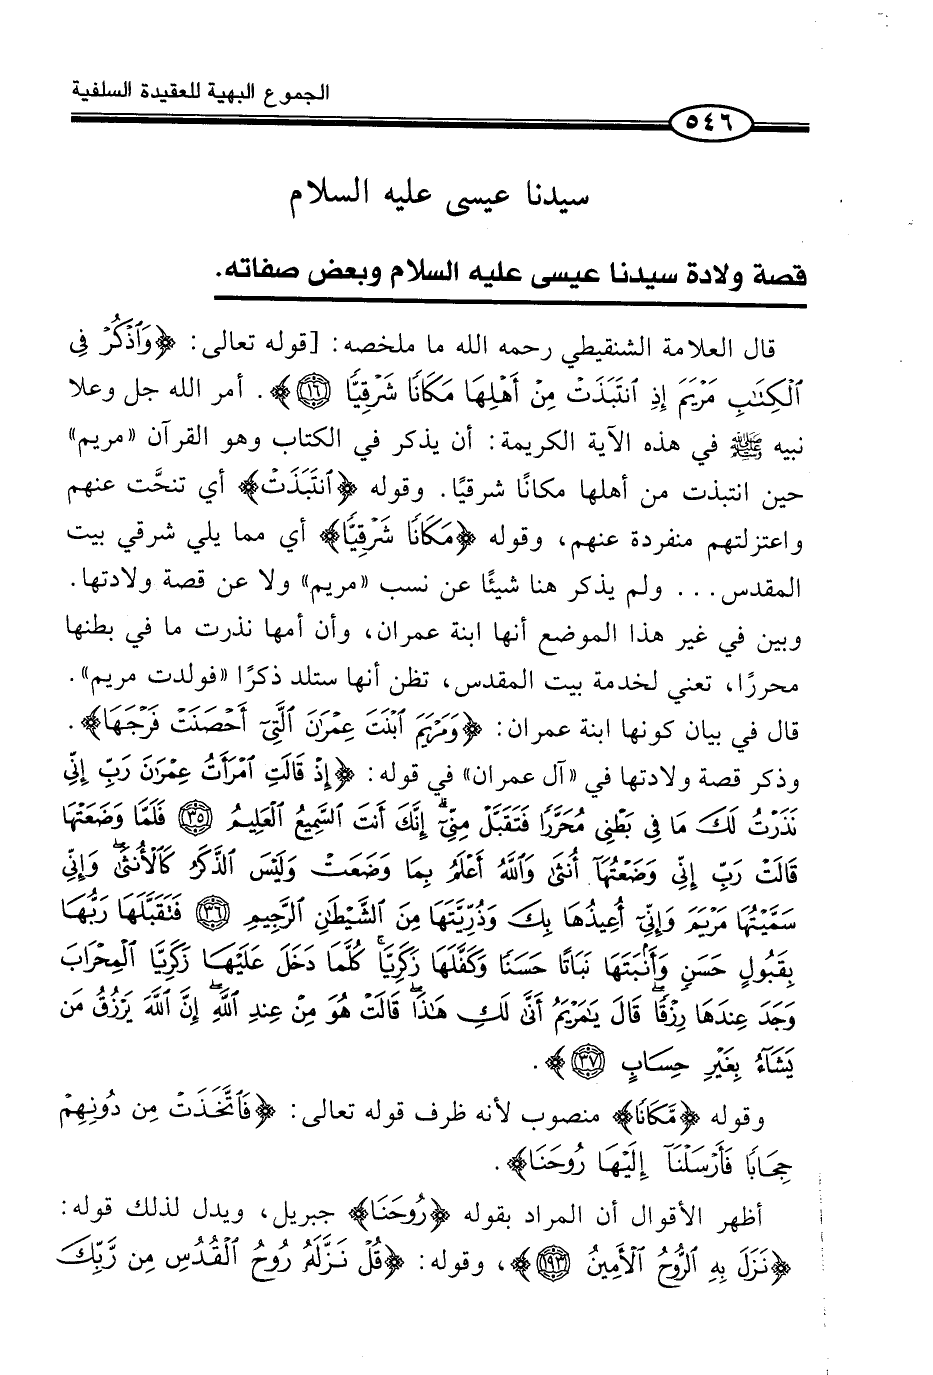 الجموع البهية للعقيدة السلفية
٥٤٦
سيدنا عيسى عليه السلام
قصة ولادة سيدنا عيسى عليه السلام وبعض صفاته.
قال العلامة الشنقيطي رحمه الله ما ملخصه: [قوله تعالى: ﴿وَٱذْكُرْ فِى
ٱلْكِتَٰبِ مَرْيَمَ إِذِ ٱنتَبَذَتْ مِنْ أَهْلِهَا مَكَانًا شَرْقِيًّا ١٦﴾. أمر الله جل وعلا
نبيه ﷺ في هذه الآية الكريمة: أن يذكر في الكتاب وهو القرآن «مريم»
حين انتبذت من أهلها مكانًا شرقيًا. وقوله ﴿ٱنتَبَذَتْ﴾ أي تنحَّت عنهم
واعتزلتهم منفردة عنهم، وقوله ﴿مَكَانًا شَرْقِيًّا﴾ أي مما يلي شرقي بيت
المقدس... ولم يذكر هنا شيئًا عن نسب «مريم» ولا عن قصة ولادتها.
وبين في غير هذا الموضع أنها ابنة عمران، وأن أمها نذرت ما في بطنها
محررًا، تعني لخدمة بيت المقدس، تظن أنها ستلد ذكرًا «فولدت مريم».
قال في بيان كونها ابنة عمران: ﴿وَمَرْيَمَ ٱبْنَتَ عِمْرَٰنَ ٱلَّتِىٓ أَحْصَنَتْ فَرْجَهَا﴾.
وذكر قصة ولادتها في «آل عمران» في قوله: ﴿إِذْ قَالَتِ ٱمْرَأَتُ عِمْرَٰنَ رَبِّ إِنِّى
نَذَرْتُ لَكَ مَا فِى بَطْنِى مُحَرَّرًا فَتَقَبَّلْ مِنِّىٓ ۖ إِنَّكَ أَنتَ ٱلسَّمِيعُ ٱلْعَلِيمُ ٣٥ فَلَمَّا وَضَعَتْهَا
قَالَتْ رَبِّ إِنِّى وَضَعْتُهَآ أُنثَىٰ وَٱللَّهُ أَعْلَمُ بِمَا وَضَعَتْ وَلَيْسَ ٱلذَّكَرُ كَٱلْأُنثَىٰ ۖ وَإِنِّى
سَمَّيْتُهَا مَرْيَمَ وَإِنِّىٓ أُعِيذُهَا بِكَ وَذُرِّيَّتَهَا مِنَ ٱلشَّيْطَٰنِ ٱلرَّجِيمِ ٣٦ فَتَقَبَّلَهَا رَبُّهَا
بِقَبُولٍ حَسَنٍ وَأَنۢبَتَهَا نَبَاتًا حَسَنًا وَكَفَّلَهَا زَكَرِيَّا ۖ كُلَّمَا دَخَلَ عَلَيْهَا زَكَرِيَّا ٱلْمِحْرَابَ
وَجَدَ عِندَهَا رِزْقًا ۖ قَالَ يَٰمَرْيَمُ أَنَّىٰ لَكِ هَٰذَا ۖ قَالَتْ هُوَ مِنْ عِندِ ٱللَّهِ ۖ إِنَّ ٱللَّهَ يَرْزُقُ مَن
يَشَآءُ بِغَيْرِ حِسَابٍ ٣٧﴾.
وقوله ﴿مَكَانًا﴾ منصوب لأنه ظرف قوله تعالى: ﴿فَٱتَّخَذَتْ مِن دُونِهِمْ
حِجَابًا فَأَرْسَلْنَآ إِلَيْهَا رُوحَنَا﴾.
أظهر الأقوال أن المراد بقوله ﴿رُوحَنَا﴾ جبريل، ويدل لذلك قوله:
﴿نَزَلَ بِهِ ٱلرُّوحُ ٱلْأَمِينُ ١٩٣﴾، وقوله: ﴿قُلْ نَزَّلَهُۥ رُوحُ ٱلْقُدُسِ مِن رَّبِّكَ